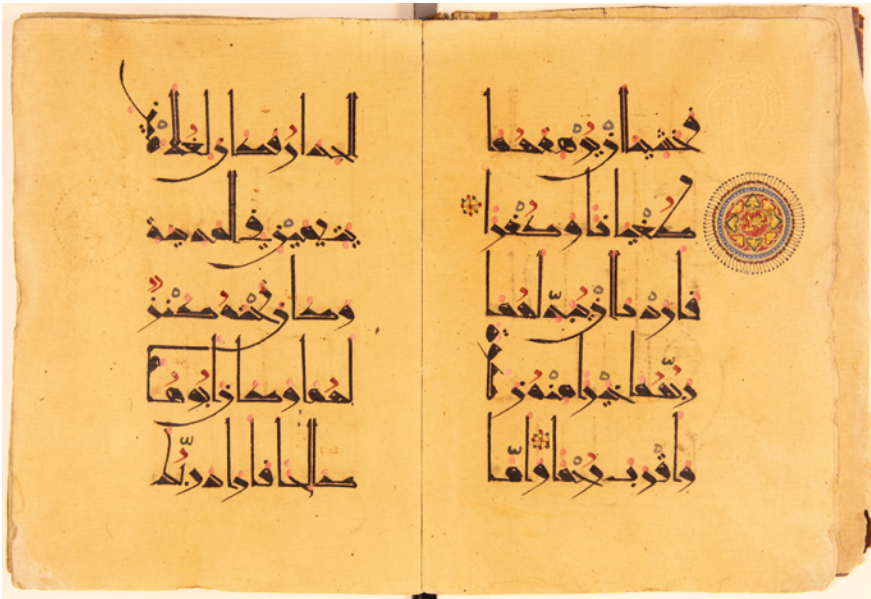 فخشينا ان يرهقهما
طغيانا وكفرا
فاردنا ان يبدلهما
ربهما خيرا منه زكوة
واقرب رحما واما
الجدار فكان لغلمين
يتيمين في المدينة
وكان تحته كنز
لهما وكان ابوهما
صالحا فاراد ربك